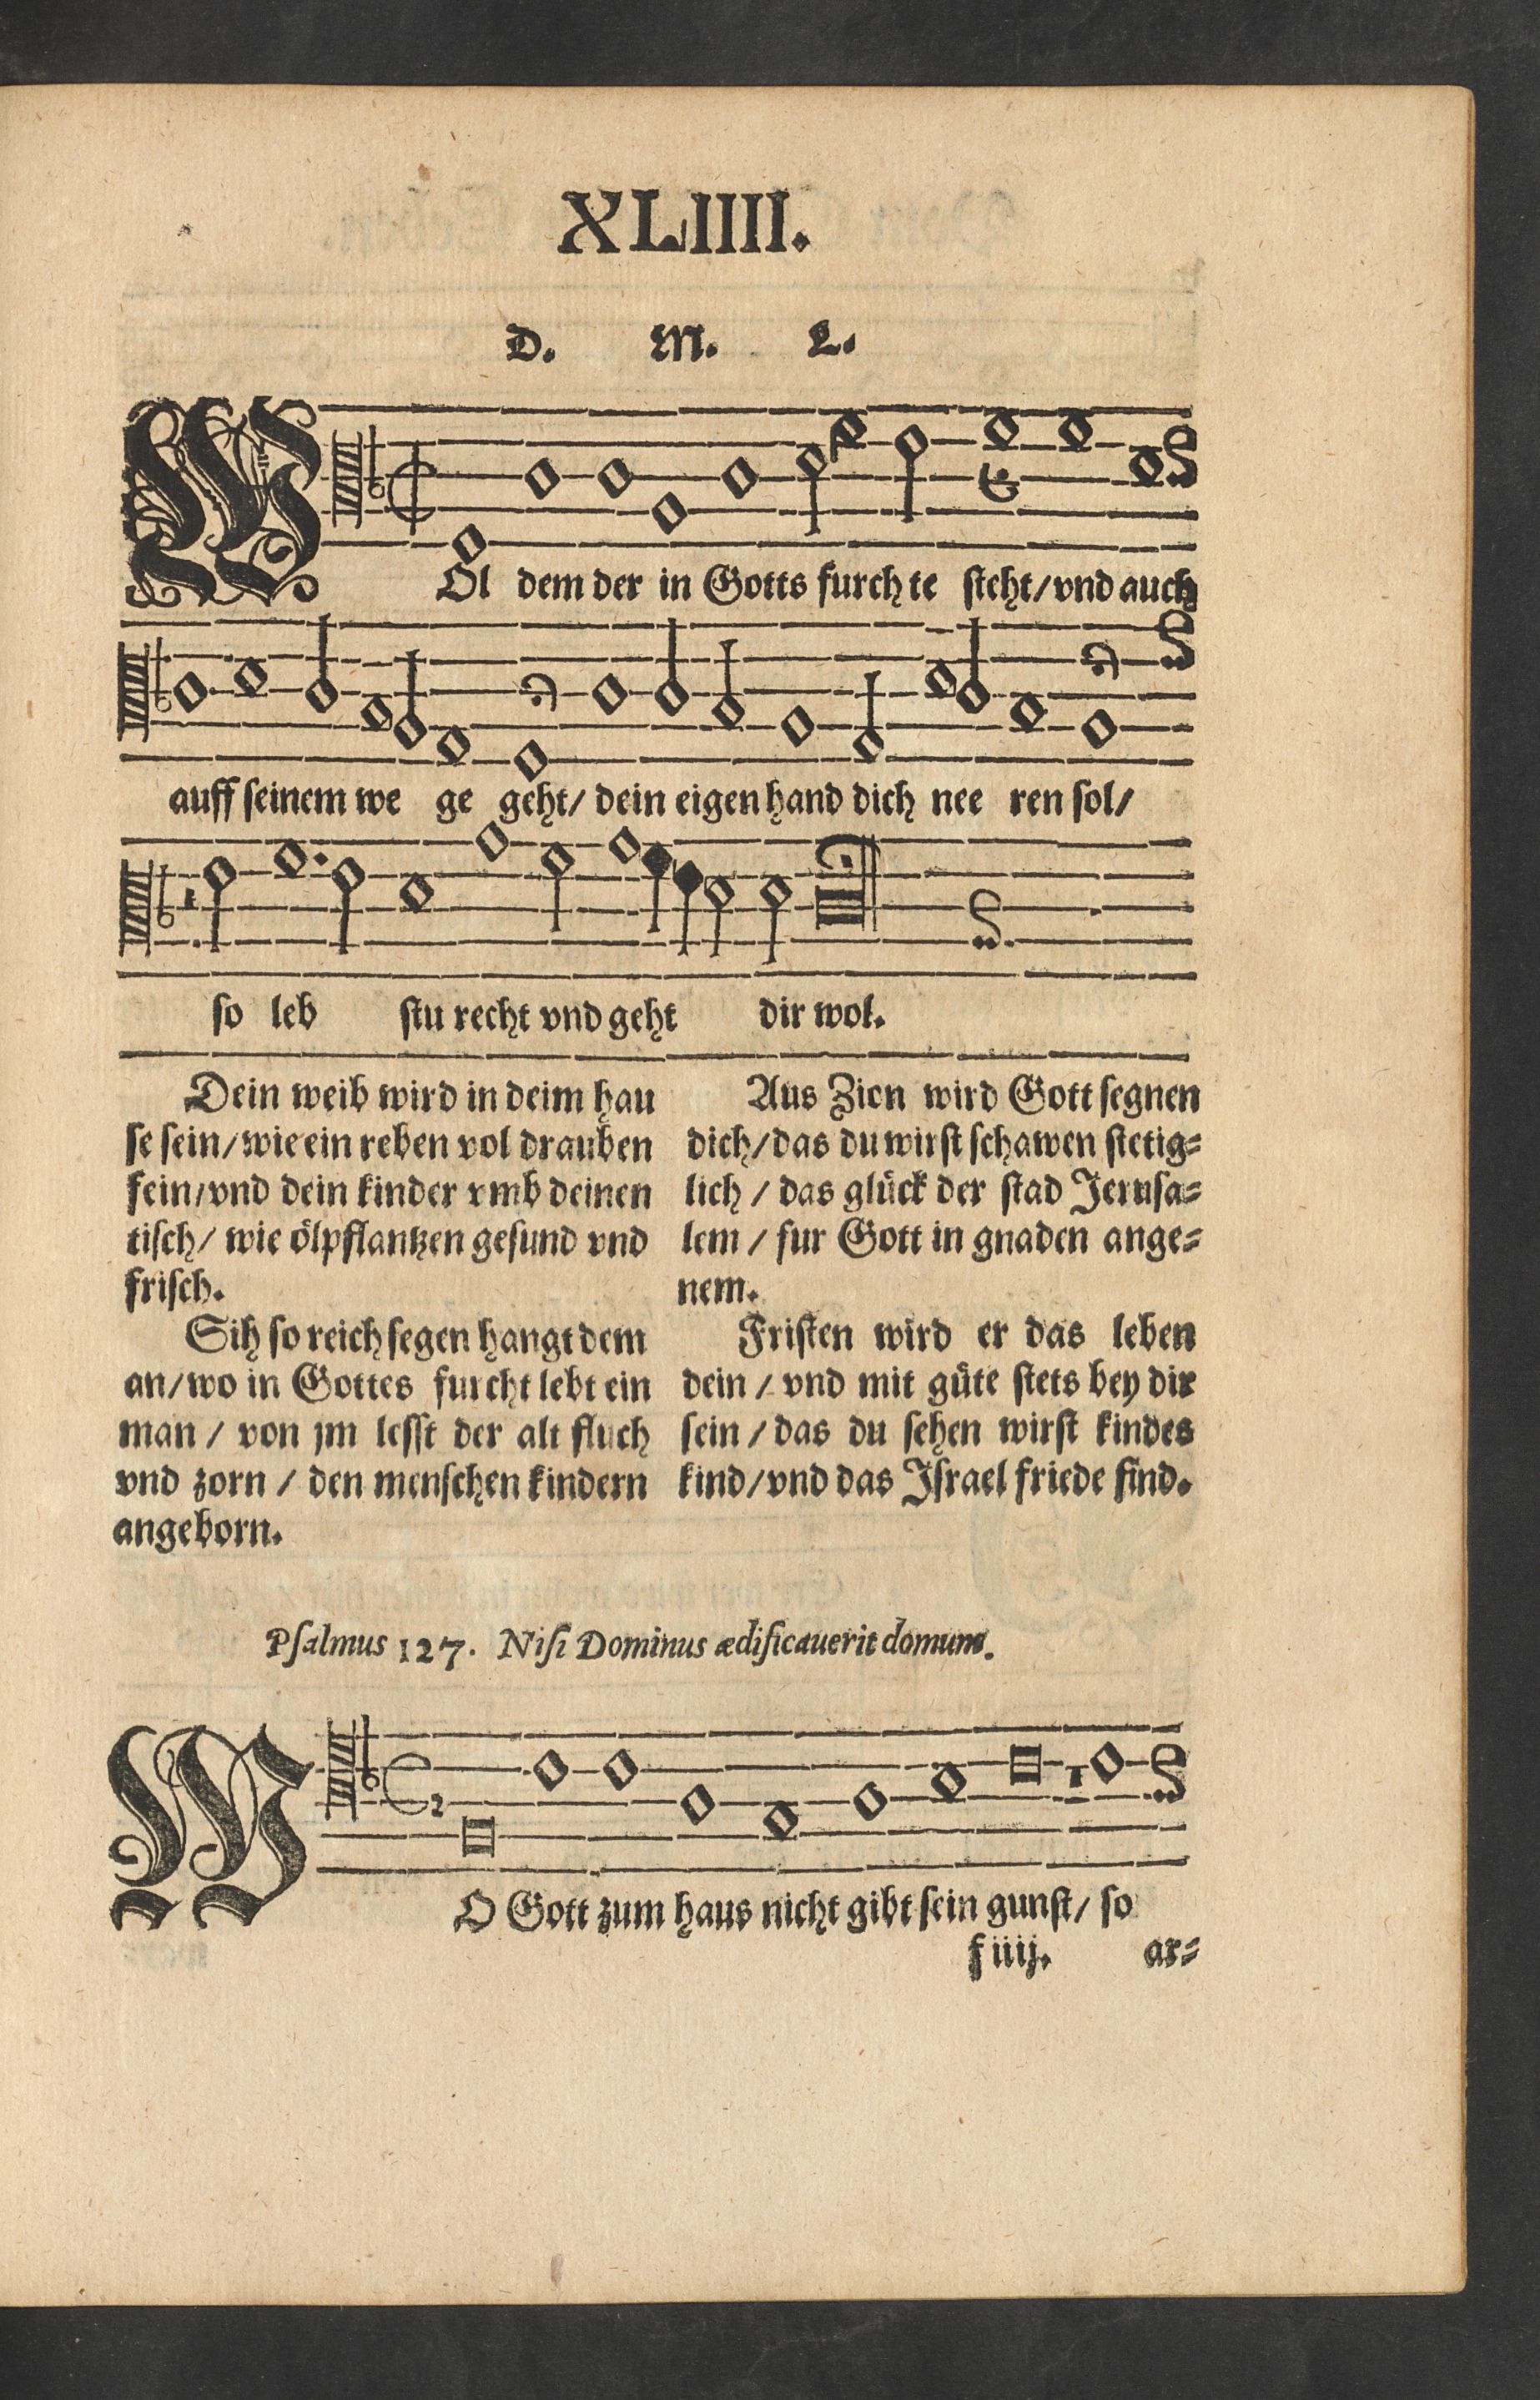 XLIIII.
D. M. L.
WOl dem der in Gotts furchte steht/vnd auch
auff seinem we ge geht/ dein eigen hand dich nee ren sol/
so leb stu recht vnd geht dir wol.
Dein weib wird in deim hau
se sein/wie ein reben vol drauben
fein/vnd dein kinder vmb deinen
tisch/ wie ölpflantzen gesund vnd
frisch.
Sih so reich segen hangt dem
an/wo in Gottes furcht lebt ein
man / von jm lesst der alt fluch
vnd zorn / den menschen kindern
angeborn.
Aus Zion wird Gott segnen
dich/das du wirst schawen stetig=
lich / das glück der stad Jerusa=
lem / fur Gott in gnaden ange=
nem.
Fristen wird er das leben
dein / vnd mit güte stets bey dir
sein / das du sehen wirst kindes
kind/vnd das Israel friede find.
Psalmus 127. Nisi Dominus ædificauerit domum.
WO Gott zum haus nicht gibt sein gunst/ so
f iiij. ar=